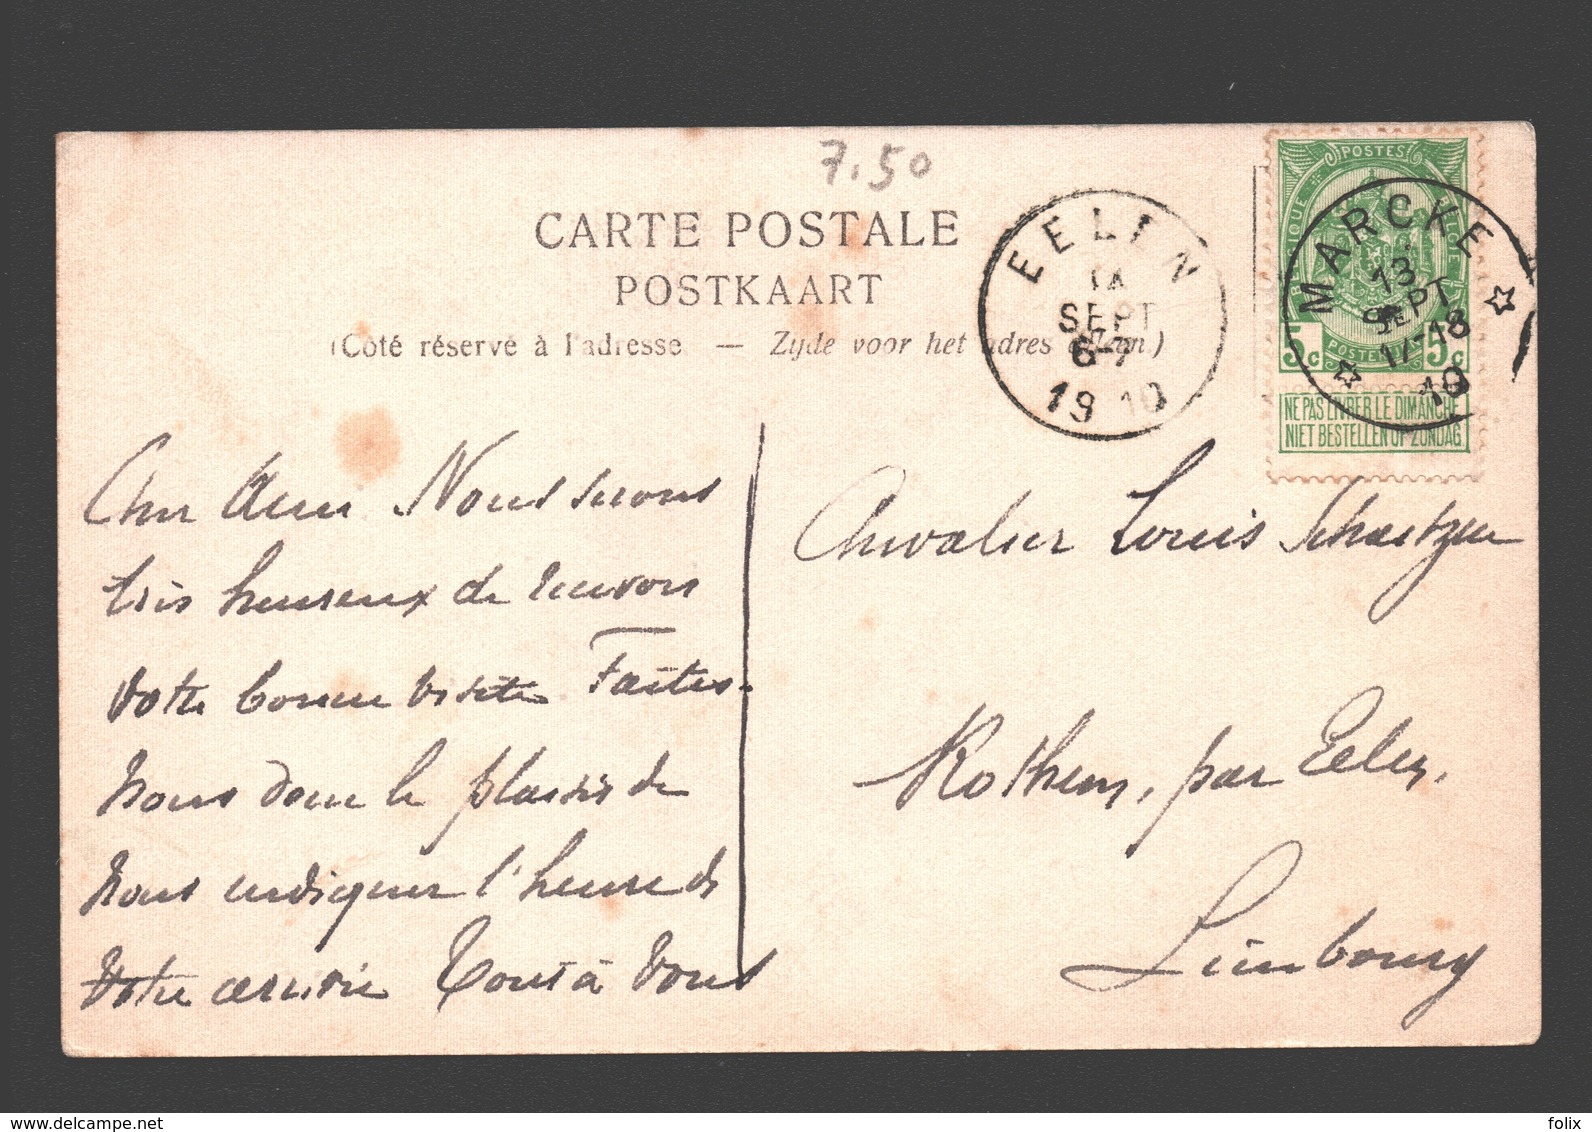 7.50
CARTE POSTALE
POSTKAART
(Côté réservé à l'adresse — Zijde voor het adres alleen.)
EELEN
14
SEPT
6-7
1910
POSTES
BELGIQUE
BELGIË
5c
5c
POSTERIJEN
NE PAS LIVRER LE DIMANCHE
NIET BESTELLEN OP ZONDAG
MARCKE
13
SEPT
17-18
10
Cher Nous serons
très heureux de recevoir
votre bonne visite Faites-
nous donc le plaisir de
nous indiquer l'heure de
votre arrivée Tout à vous
Chevalier Louis Schaetzen
Rothem, par Eelen,
Limbourg
delcampe.net
folix